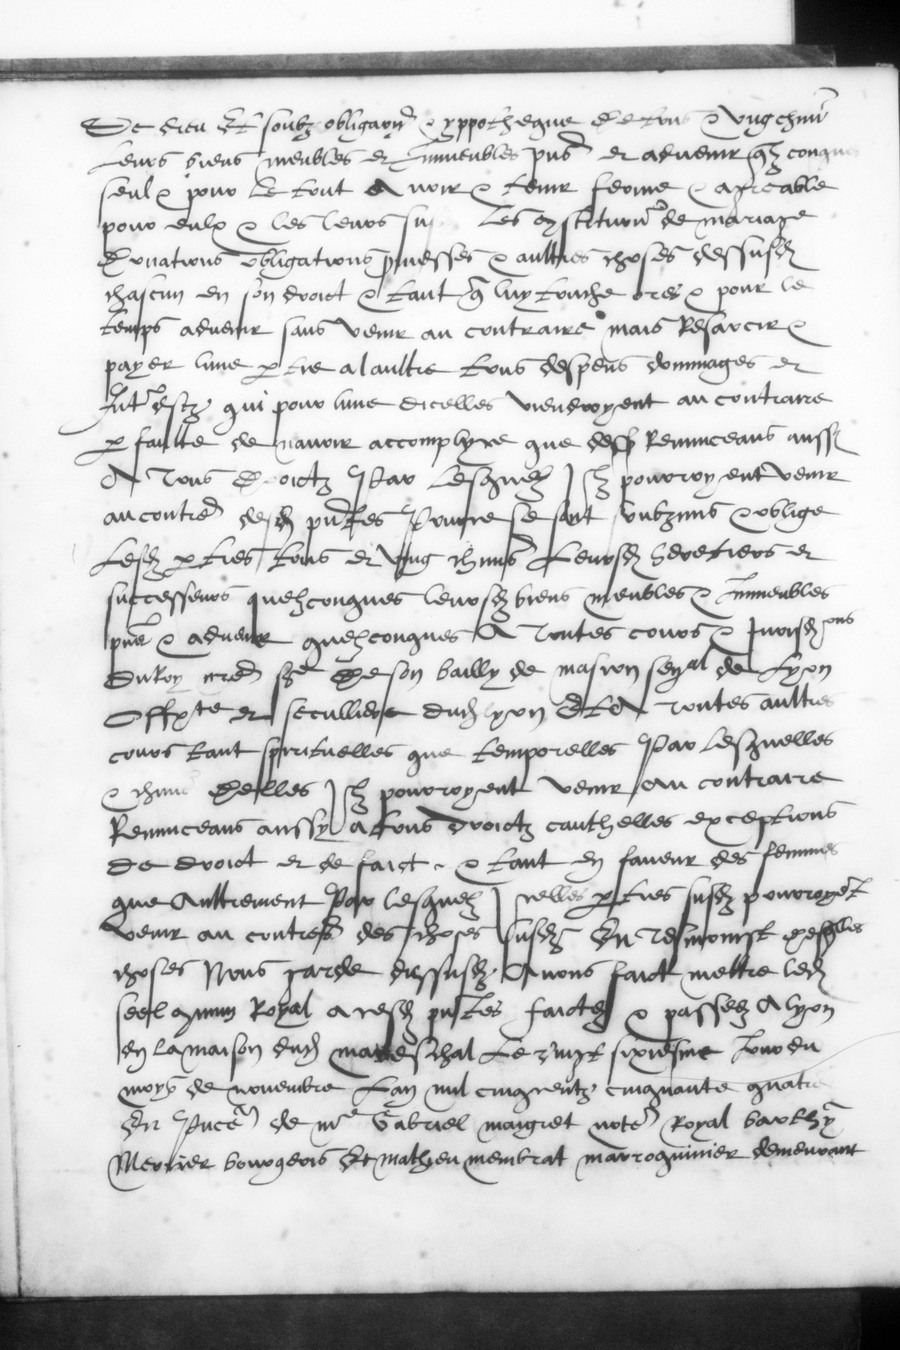 De dieu Et soubz obligaon & yppothegue de tous & ung chmr
leurs biens meubles et Immeubles pns et advenir qz conques
seul & pour le tout Avoir & tenir ferme & agreable
pour eulx & les leurs les constitution de mariage
donations obligations pmesses & aultres choses dessusd
chascun en son droict & tant q luy touche ores & pour le
temps advenir sans venir au contraire mais Resarcir &
payer lune ptie a laultre tous despens dommages et
Intestz qui pour lune dicelles viendroyent au contraire
p faulte de navoir accomplyre que dess Renunceans aussy
A Tous droictz Par Lesquelz Ilz pourroyent venir
au contre desd pntes Pource se sont soubzmis & oblige
Lesd pties tous et ung chuns Leursd heretiers et
successeurs quelzconques leursd biens meubles & Immeubles
pns & advenir quelzconques A Toutes cours & Juridons
du Roy nre sre de son bailly de mascon senal de Lyon
Offte et seculliere dud lyon Et A Toutes aultres
cours tant spirituelles que temporelles Par Lesquelles
& chune delles Ilz pourroyent venir Au contraire
Renunceans aussy a tous droictz cauthelles exceptions
de droict et de faict & tant en faveur des femmes
que Aultrement Par lesquelz Icelles pties susd pourroyet
venir au contre des choses susd En Tesmoingt desqlles
choses Nous garde dessusd Avons faict mettre led
seel comun Royal a cesd pntes faictes & passees A lyon
en la maison dud mareschal Le vingt sixiesme Jour du
moys de novembre Lan mil cinq centz cinquante quatre
En Pnce de me Gabriel maigret note Royal barthy
Mercier bourgeois Et mathieu membrat marroquinier demeurant